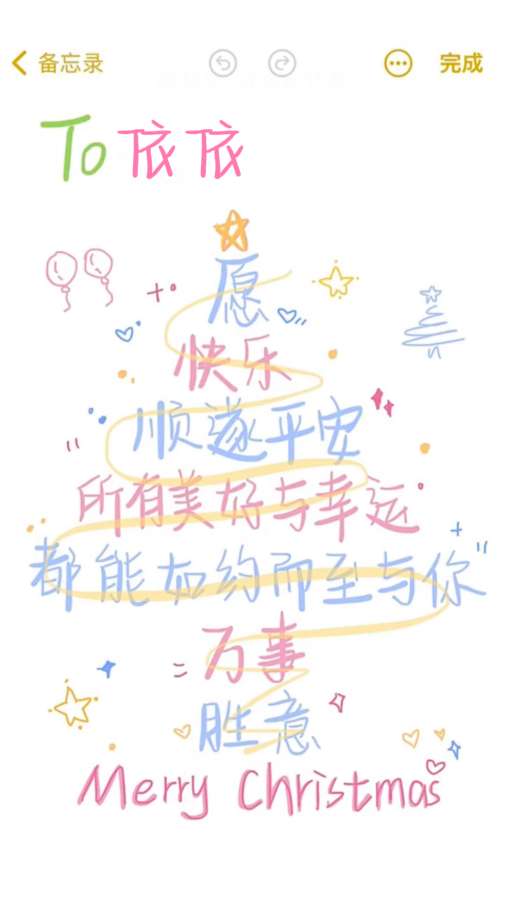 备忘录 完成
To 依依
愿
快乐
顺遂平安
所有美好与幸运
都能如约而至与你
万事
胜意
Merry Christmas